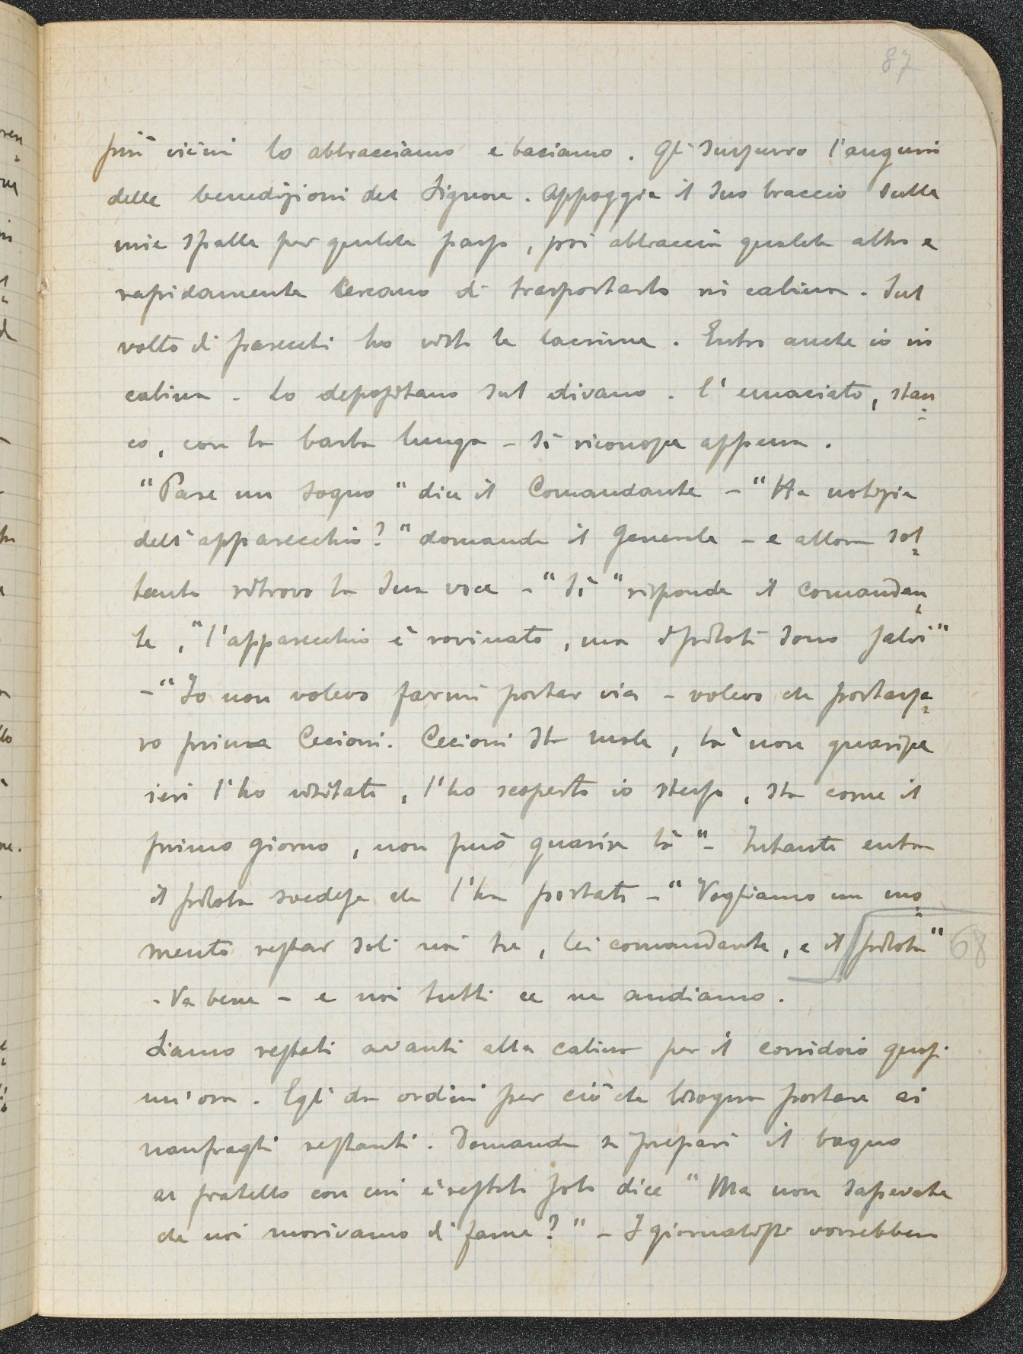 87
più vicini lo abbracciamo e baciamo. Gli sussurro l'augurio
delle benedizioni del Signore. Appoggia il suo braccio sulla
mia spalla per qualche passo, poi abbraccia qualche altro e
rapidamente cercano di trasportarlo in cabina. Sul
volto di parecchi ho visto le lacrime. Entro anche io in
cabina - Lo depositano sul divano. È emaciato, stan
co, con la barba lunga - Si riconosce appena.
"Pare un sogno" dice il Comandante - "Ha notizia
dell'apparecchio?" domanda il Generale - e allora sol
tanto ritrovo la sua voce - "Sì" risponde il comandan
te, "l'apparecchio è rovinato, ma i piloti sono salvi"
- "Io non volevo farmi portar via - volevo che portasse
ro prima Cecioni. Cecioni sta male, là non guarisce
ieri l'ho visitato, l'ho scoperto io stesso, sta come il
primo giorno, non può guarire là" - Intanto entra
il pilota svedese che l'ha portato - "Vogliamo un mo
mento restar soli noi tre, lei comandante, e il pilota"
68
- Va bene - e noi tutti ce ne andiamo.
Siamo restati avanti alla cabina per il corridoio quasi
un'ora. Egli da ordini per ciò che bisogna portare ai
naufraghi restanti. Domanda si prepari il bagno
al fratello con cui è restato solo dice "Ma non sapevate
che noi morivamo di fame?" - I giornalisti vorrebbero